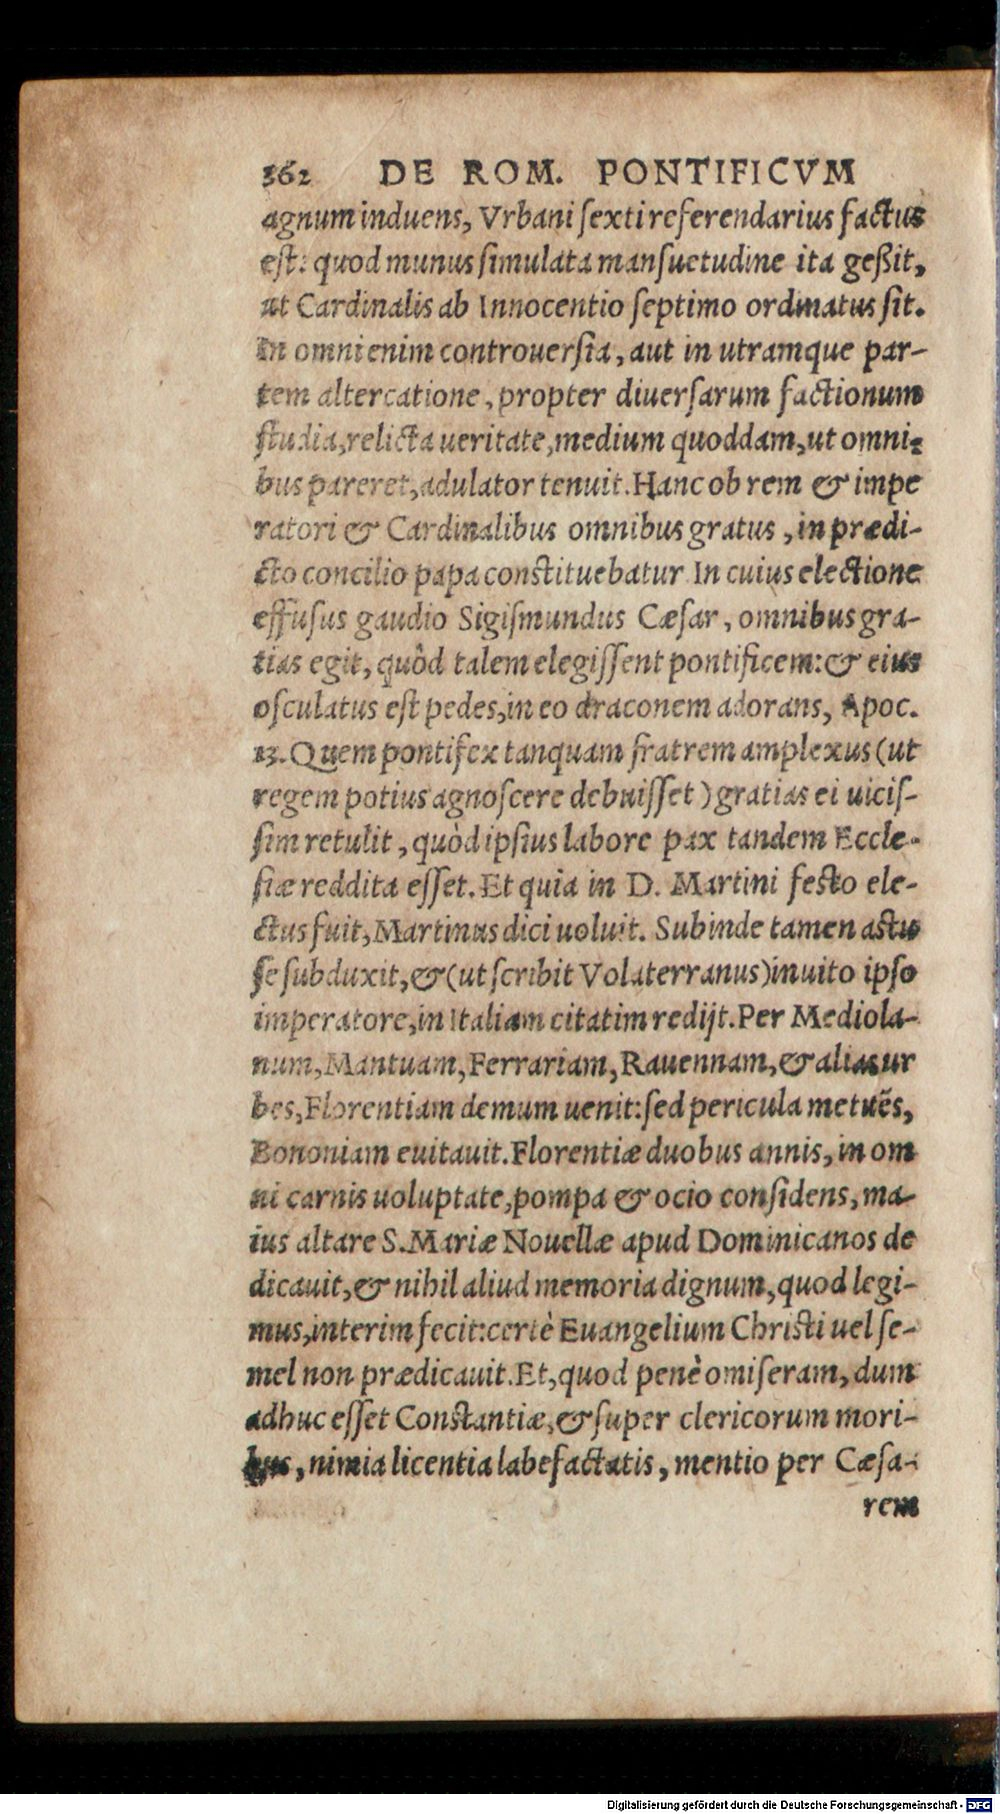 362 DE ROM. PONTIFICVM
agnum induens, Vrbani ſexti referendarius factus
eſt: quod munus ſimulata manſuetudine ita geßit,
ut Cardinalis ab Innocentio ſeptimo ordinatus ſit.
In omni enim controuerſia, aut in utramque par-
tem altercatione, propter diuerſarum factionum
ſtudia, relicta ueritate, medium quoddam, ut omni-
bus pareret, adulator tenuit. Hanc ob rem & impe
ratori & Cardinalibus omnibus gratus, in prædi-
cto concilio papa conſtituebatur In cuius electione
effuſus gaudio Sigiſmundus Cæſar, omnibus gra-
tias egit, quòd talem elegiſſent pontificem: & eius
oſculatus eſt pedes, in eo draconem adorans, Apoc.
13. Quem pontifex tanquam fratrem amplexus (ut
regem potius agnoſcere debuiſſet) gratias ei uiciſ-
ſim retulit, quòd ipſius labore pax tandem Eccle-
ſiæ reddita eſſet. Et quia in D. Martini feſto ele-
ctus fuit, Martinus dici uoluit. Subinde tamen aſtu
ſe ſubduxit, & (ut ſcribit Volaterranus) inuito ipſo
imperatore, in Italiam citatim redijt. Per Mediola-
num, Mantuam, Ferrariam, Rauennam, & alias ur
bes, Florentiam demum uenit: ſed pericula metuẽs,
Bononiam euitauit. Florentiæ duobus annis, in om
ni carnis uoluptate, pompa & ocio conſidens, ma-
ius altare S. Mariæ Nouellæ apud Dominicanos de
dicauit, & nihil aliud memoria dignum, quod legi-
mus, interim fecit: certè Euangelium Chriſti uel ſe-
mel non prædicauit. Et, quod penè omiſeram, dum
adhuc eſſet Conſtantiæ, & ſuper clericorum mori-
bus, nimia licentia labefactatis, mentio per Cæſa-
rem
Digitalisierung gefördert durch die Deutsche Forschungsgemeinschaft - DFG